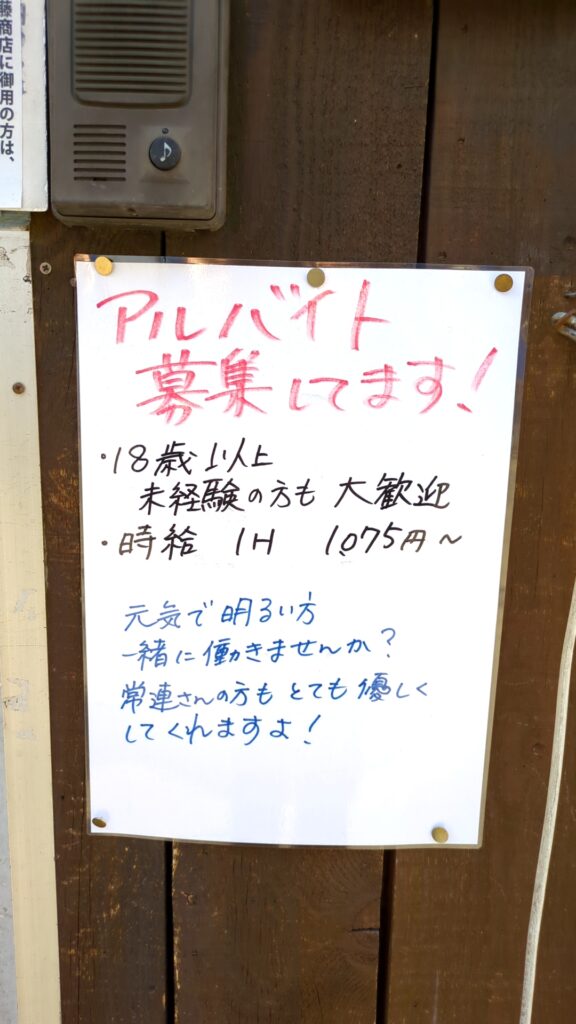 藤商店に御用の方は、
アルバイト
募集してます！
・18歳以上
未経験の方も 大歓迎
・時給 1H 1075円～
元気で明るい方
一緒に働きませんか？
常連さんの方も とても優しく
してくれますよ！